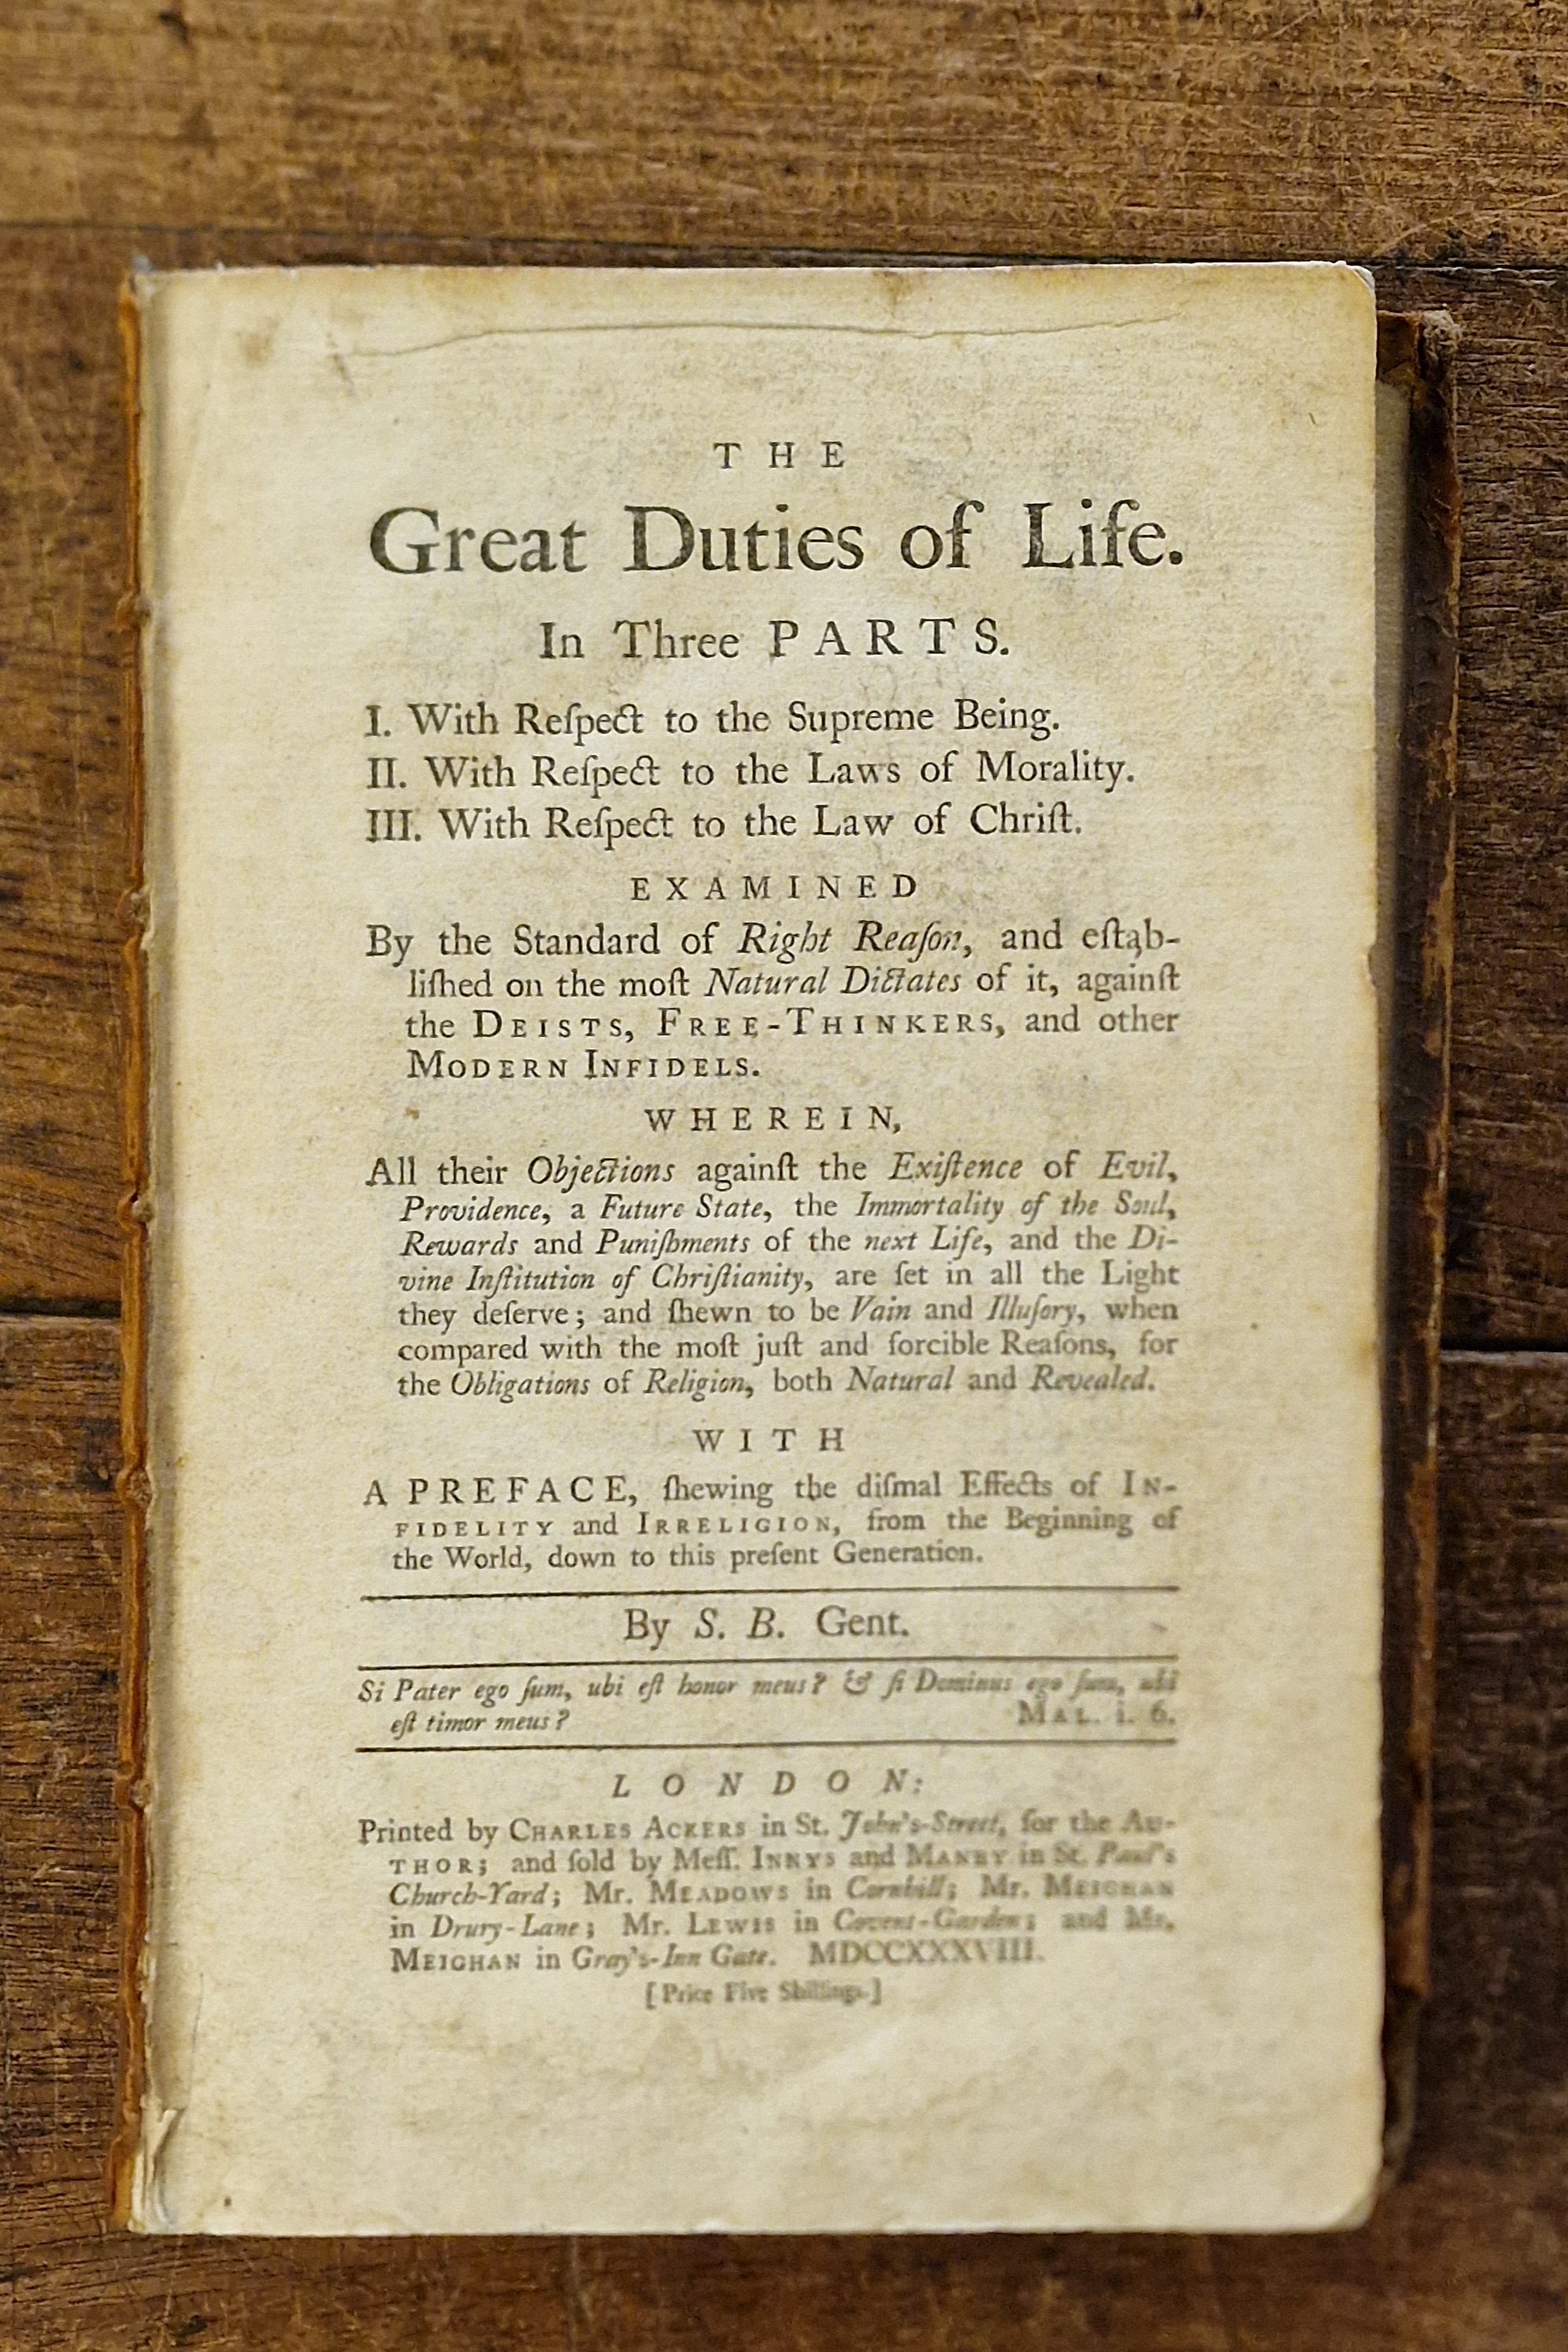 THE
Great Duties of Life.
In Three PARTS.
I. With Reſpect to the Supreme Being.
II. With Reſpect to the Laws of Morality.
III. With Reſpect to the Law of Chriſt.
EXAMINED
By the Standard of Right Reaſon, and eſtab-
liſhed on the moſt Natural Dictates of it, againſt
the DEISTS, FREE-THINKERS, and other
MODERN INFIDELS.
WHEREIN,
All their Objections againſt the Exiſtence of Evil,
Providence, a Future State, the Immortality of the Soul,
Rewards and Puniſhments of the next Life, and the Di-
vine Inſtitution of Chriſtianity, are ſet in all the Light
they deſerve; and ſhewn to be Vain and Illuſory, when
compared with the moſt juſt and forcible Reaſons, for
the Obligations of Religion, both Natural and Revealed.
WITH
A PREFACE, ſhewing the diſmal Effects of IN-
FIDELITY and IRRELIGION, from the Beginning of
the World, down to this preſent Generation.
By S. B. Gent.
Si Pater ego ſum, ubi eſt honor meus? & ſi Dominus ego ſum, ubi
eſt timor meus? MAL. i. 6.
LONDON:
Printed by CHARLES ACKERS in St. John's-Street, for the AU-
THOR; and ſold by Meſſ. INNYS and MANBY in St. Paul's
Church-Yard; Mr. MEADOWS in Cornhill; Mr. MEIGHAN
in Drury-Lane; Mr. LEWIS in Covent-Garden; and Mr.
MEIGHAN in Gray's-Inn Gate. MDCCXXXVIII.
[Price Five Shillings.]